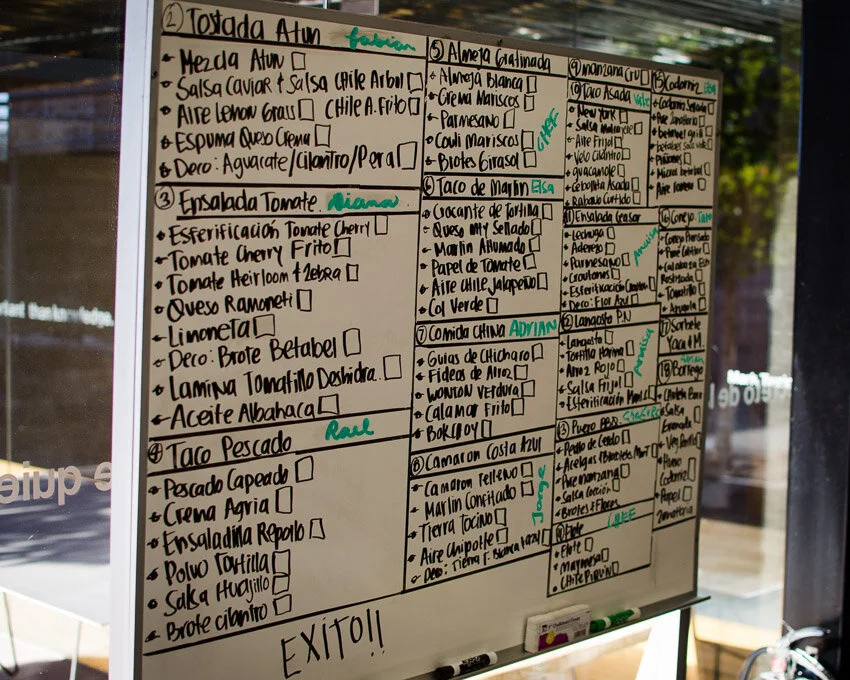 ② Tostada Atun Fabian
Mezcla Atun
Salsa Caviar + Salsa CHile Arbol
Aire Lemon Grass CHile A. Frito
Espuma Queso Crema
Deco: Aguacate/Cilantro/Pera
③ Ensalada Tomate. Diana
Esferificación Tomate Cherry
Tomate Cherry Frito
Tomate Heirloom + Zebra
Queso Ramoneti
Limoneta
Deco: Brote Betabel
Lamina Tomatillo Deshidra.
Aceite Albahaca
④ Taco Pescado Raul
Pescado Capeado
Crema Agria
Ensaladilla Repollo
Polvo Tortilla
Salsa Huajillo
Brote cilantro
EXITO!!
⑤ Almeja Gratinada
Almeja Blanca
Crema Mariscos
Parmesano
Couli Mariscos
Brotes Girasol
CHEF
⑥ Taco de Marlin Elsa
Crocante de Tortilla
Queso Mty Sellado
Marlin Ahumado
Papel de Tomate
Aire CHile Jalapeño
Col Verde
⑦ Comida CHINA ADRIAN
Guias de CHicharo
Fideos de Arroz
WONTON Verdura
Calamar Frito
BokCHoy
⑧ Camaron Costa Azul
Camaron Relleno
Marlin Confitado
Tierra Tocino
Aire Chipotle
Deco: Tierra F.
Jorge
⑨ manzana
⑩ Taco Asada
New York
Salsa
Aire Frijol
Velo Cilantro
guacamole
Cebollita Asada
Rabano Curtido
⑪ Ensalada Cesar
Lechuga
Aderejo
Parmesano
Croutones
Esferificación
Deco: Flor Azul
⑫ Langosta P.N
Langosta
Tortilla Harina
Arroz Rojo
Salsa Frijol
Esferificación
⑬ Puerco BBQ
Acelgas
Pure manzana
Salsa
Brotes + Flores
CHEF
Elote
Elote
Mayonesa
CHile Piquin
Codorniz Elsa
Codorniz Sellada
Piñones
Micro betabel
⑯ Conejo
Tomatillo
⑰ Sorbete
⑱ Borrego
Salsa
Huevo
Codorniz
Papel
Zanahoria